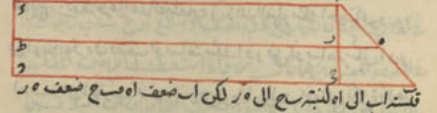 ه ر ط
ح
فنسبة اب الى اه كنسبة بح الى ه ر لكن اب ضعف اه فبح ضعف ه ر